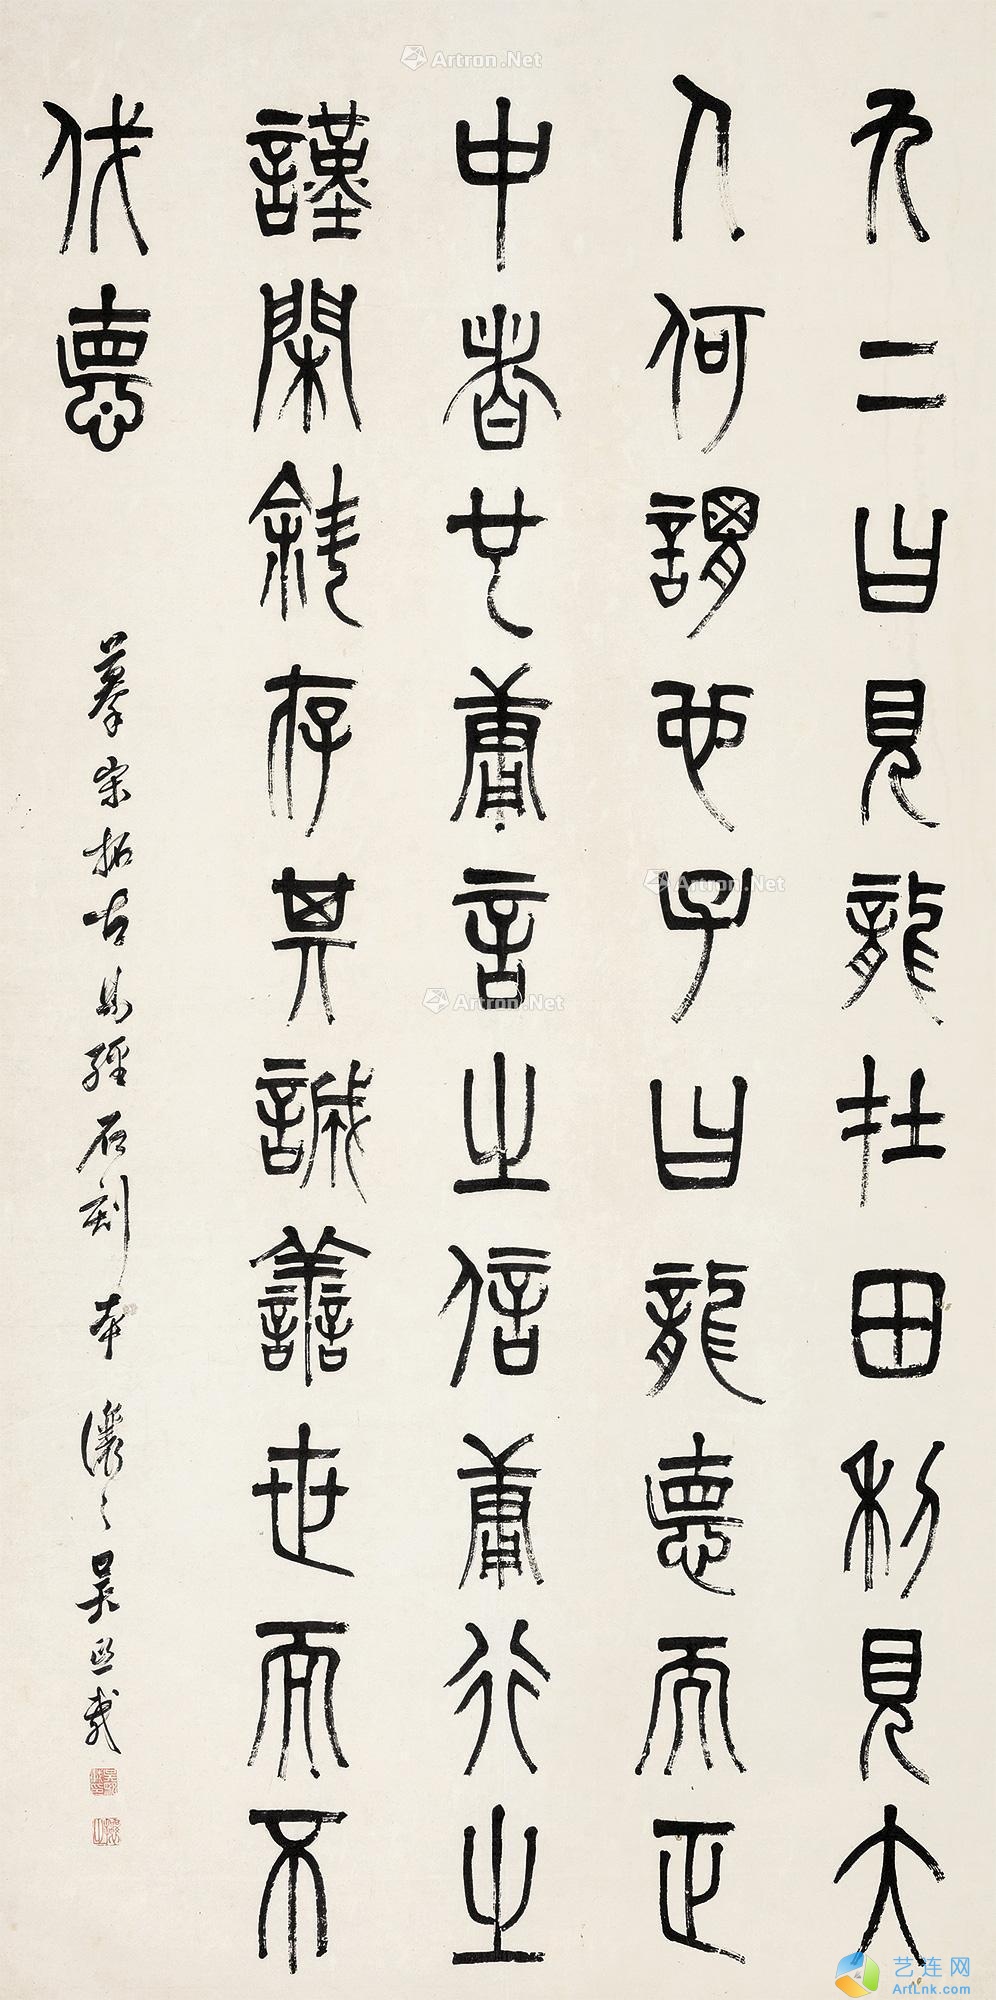 九二曰見龍在田利見大
人何謂也子曰龍悳而正
中者也庸言之信庸行之
謹閑斜存其誠譱世而不
伐悳
摹宋拓古易經石刻本 讓之吳熙載
Artron.Net
Artron.Net
Artron.Net
艺连网
ArtLnk.com